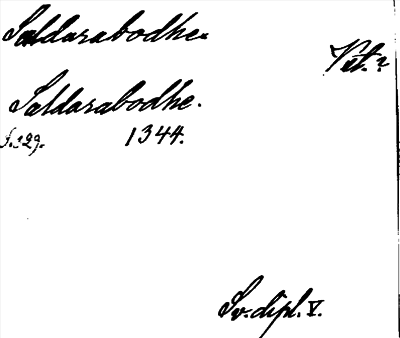 Saldarabodhe.
Vet. ?
Saldarabodhe.
s. 329. 1344.
Sv. dipl. V.